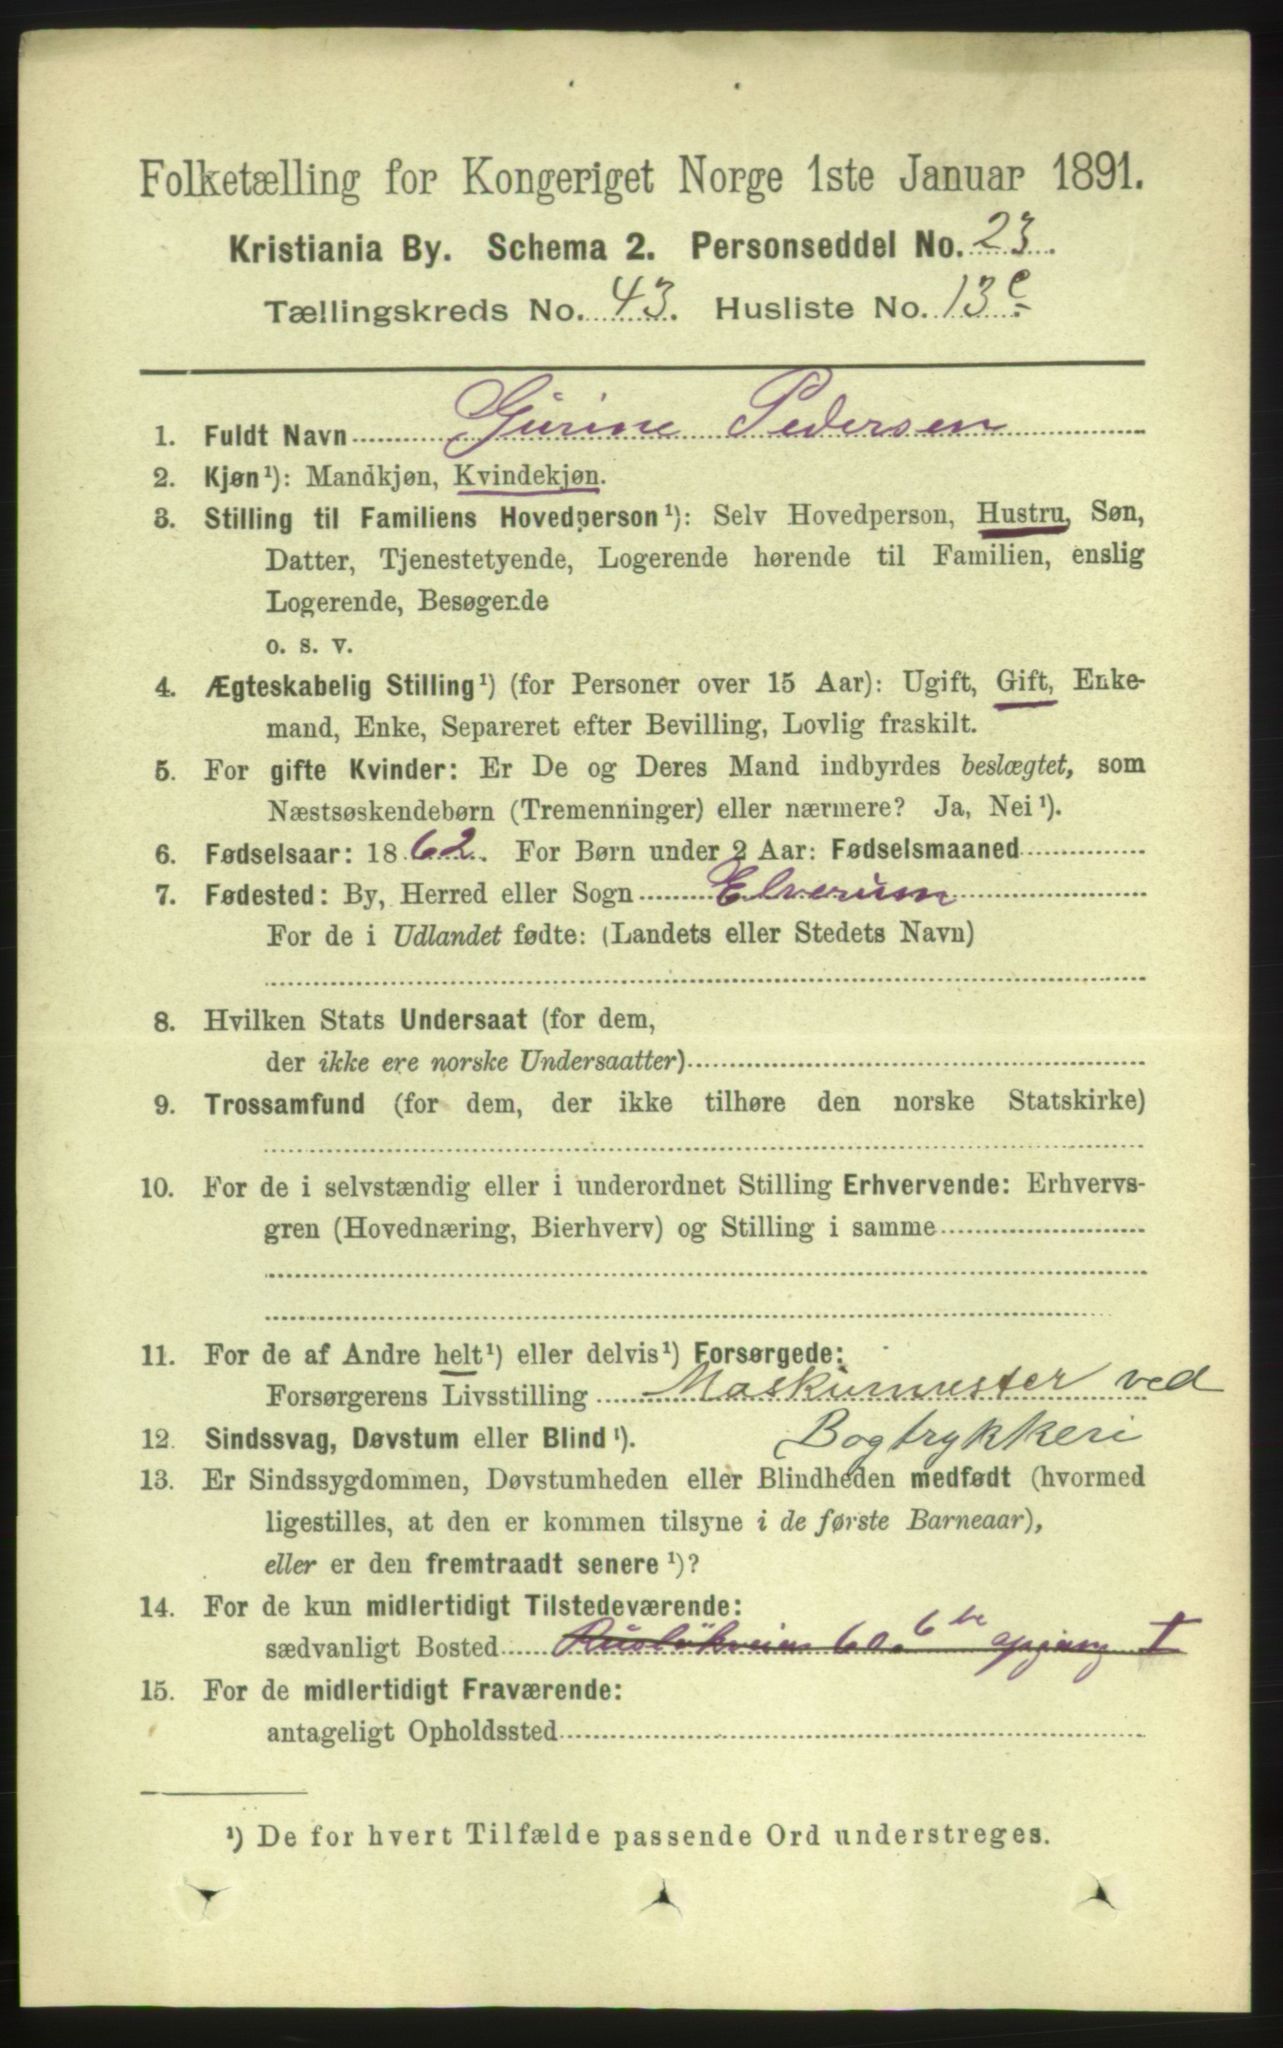 Folketælling for Kongeriget Norge 1ste Januar 1891.
Kristiania By. Schema 2. Personseddel No. 23.
Tællingskreds No. 43. Husliste No. 13c.
1. Fuldt Navn Gurine Pedersen
2. Kjøn¹): Mandkjøn, Kvindekjøn.
3. Stilling til Familiens Hovedperson¹): Selv Hovedperson, Hustru, Søn,
Datter, Tjenestetyende, Logerende hørende til Familien, enslig
Logerende, Besøgende
o. s. v.
4. Ægteskabelig Stilling¹) (for Personer over 15 Aar): Ugift, Gift, Enke-
mand, Enke, Separeret efter Bevilling, Lovlig fraskilt.
5. For gifte Kvinder: Er De og Deres Mand indbyrdes beslægtet, som
Næstsøskendebørn (Tremenninger) eller nærmere? Ja, Nei¹).
6. Fødselsaar: 1862. For Børn under 2 Aar: Fødselsmaaned
7. Fødested: By, Herred eller Sogn Elverum
For de i Udlandet fødte: (Landets eller Stedets Navn)
8. Hvilken Stats Undersaat (for dem,
der ikke ere norske Undersaatter)
9. Trossamfund (for dem, der ikke tilhøre den norske Statskirke)
10. For de i selvstændig eller i underordnet Stilling Erhvervende: Erhvervs-
gren (Hovednæring, Bierhverv) og Stilling i samme
11. For de af Andre helt¹) eller delvis¹) Forsørgede:
Forsørgerens Livsstilling Maskinmester ved
12. Sindssvag, Døvstum eller Blind¹). Bogtrykkeri
13. Er Sindssygdommen, Døvstumheden eller Blindheden medfødt (hvormed
ligestilles, at den er kommen tilsyne i de første Barneaar),
eller er den fremtraadt senere¹)?
14. For de kun midlertidigt Tilstedeværende:
sædvanligt Bosted 60. 6te opgang I
15. For de midlertidigt Fraværende:
antageligt Opholdssted
¹) De for hvert Tilfælde passende Ord understreges.